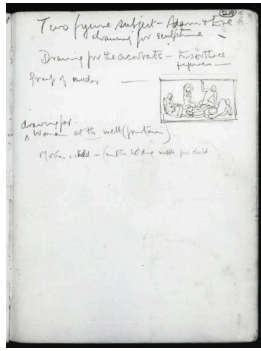 Two figure subject - Adam & Eve
drawing for sculpture
Drawing for the acrobats - two or three
figures
group of nudes
drawing for
Woman at the well (fountain)
Mother & child - mother holding child